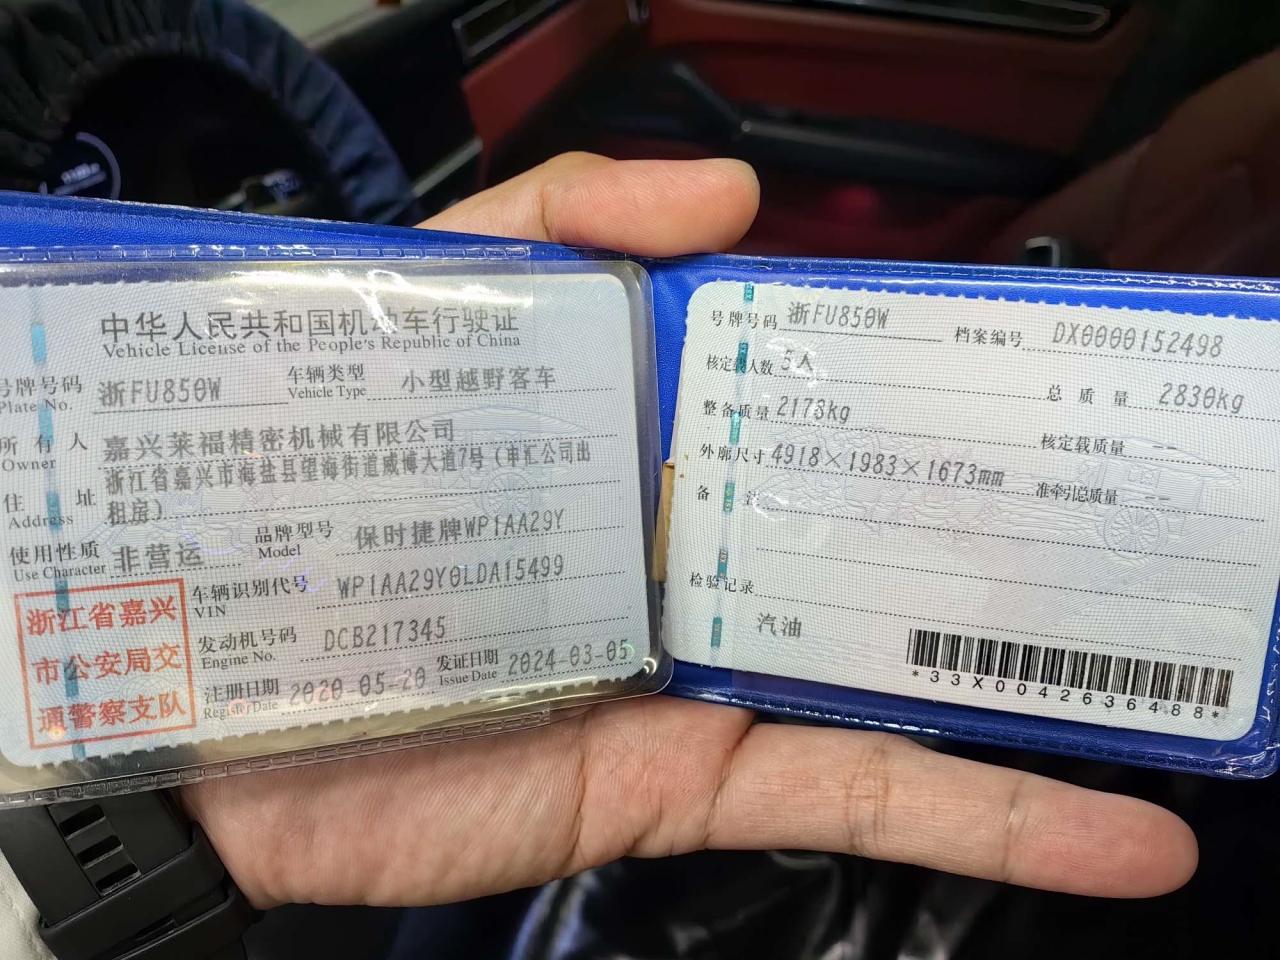 中华人民共和国机动车行驶证
Vehicle License of the People's Republic of China
号牌号码 浙FU850W 车辆类型 小型越野客车
Plate No. Vehicle Type
所有人 嘉兴莱福精密机械有限公司
Owner
住址 浙江省嘉兴市海盐县望海街道威博大道7号（申汇公司出
Address 租房）
使用性质 非营运 品牌型号 保时捷牌WP1AA29Y
Use Character Model
浙江省嘉兴
市公安局交
通警察支队
车辆识别代号 WP1AA29Y0LDA15499
VIN
发动机号码 DCB217345
Engine No.
注册日期 2020-05-20 发证日期 2024-03-05
Register Date Issue Date
号牌号码 浙FU850W 档案编号 DX0000152498
核定载人数 5人 总质量 2830kg
整备质量 2173kg 核定载质量 --
外廓尺寸 4918×1983×1673mm 准牵引总质量 --
备注
检验记录
汽油
*33X0042636488*